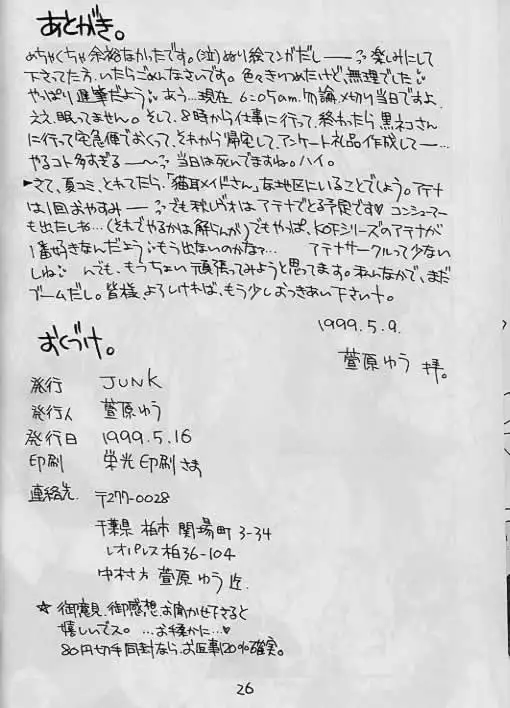 あとがき。
めちゃくちゃ余裕なかったです。(泣)ぬり絵マンガだし──っっ楽しみにして
下さってた方、いたらごめんなさいです。色々きわめたけど、無理でした
やっぱり遅筆だよう あう…現在 6:05am. 勿論〆切り当日ですよ
ええ、眠ってません。そして、8時から仕事に行って、終わったら黒ネコさん
に行って宅急便でおくって、それから帰宅して、アンケート礼品作成して──…
やるコト多すぎる──〜っっ 当日は死んでますね。ハイ。
►さて、夏コミ、とれてたら、「猫耳メイドさん」な地区にいることでしょう。アテナ
は1回おやすみ──っっでも秋レヴォはアテナでとる予定です♥ コンシューマー
も出たしね…(それでやるかは解らんが)でもやっぱ、KOFシリーズのアテナが
1番好きなんだよう もう出ないのかなァ… アテナサークルって少ない
しね んでも、もうちょい頑張ってみようと思ってます。私んなかで、まだ
ブームだし。皆様、よろしければ、もう少しおつきあい下さいナ。
1999.5.9.
萱原ゆう 拝。
おくづけ。
発行 JUNK
発行人 萱原ゆう
発行日 1999.5.16
印刷 栄光印刷さま
連絡先. 〒277-0028
千葉県 柏市 関場町 3-34
レオパレス柏36-104
中村方 萱原ゆう迄.
☆ 御意見、御感想、お聞かせ下さると
嬉しいでス。…お手柔かに…♥
80円切手同封なら、お返事120%確実。
26